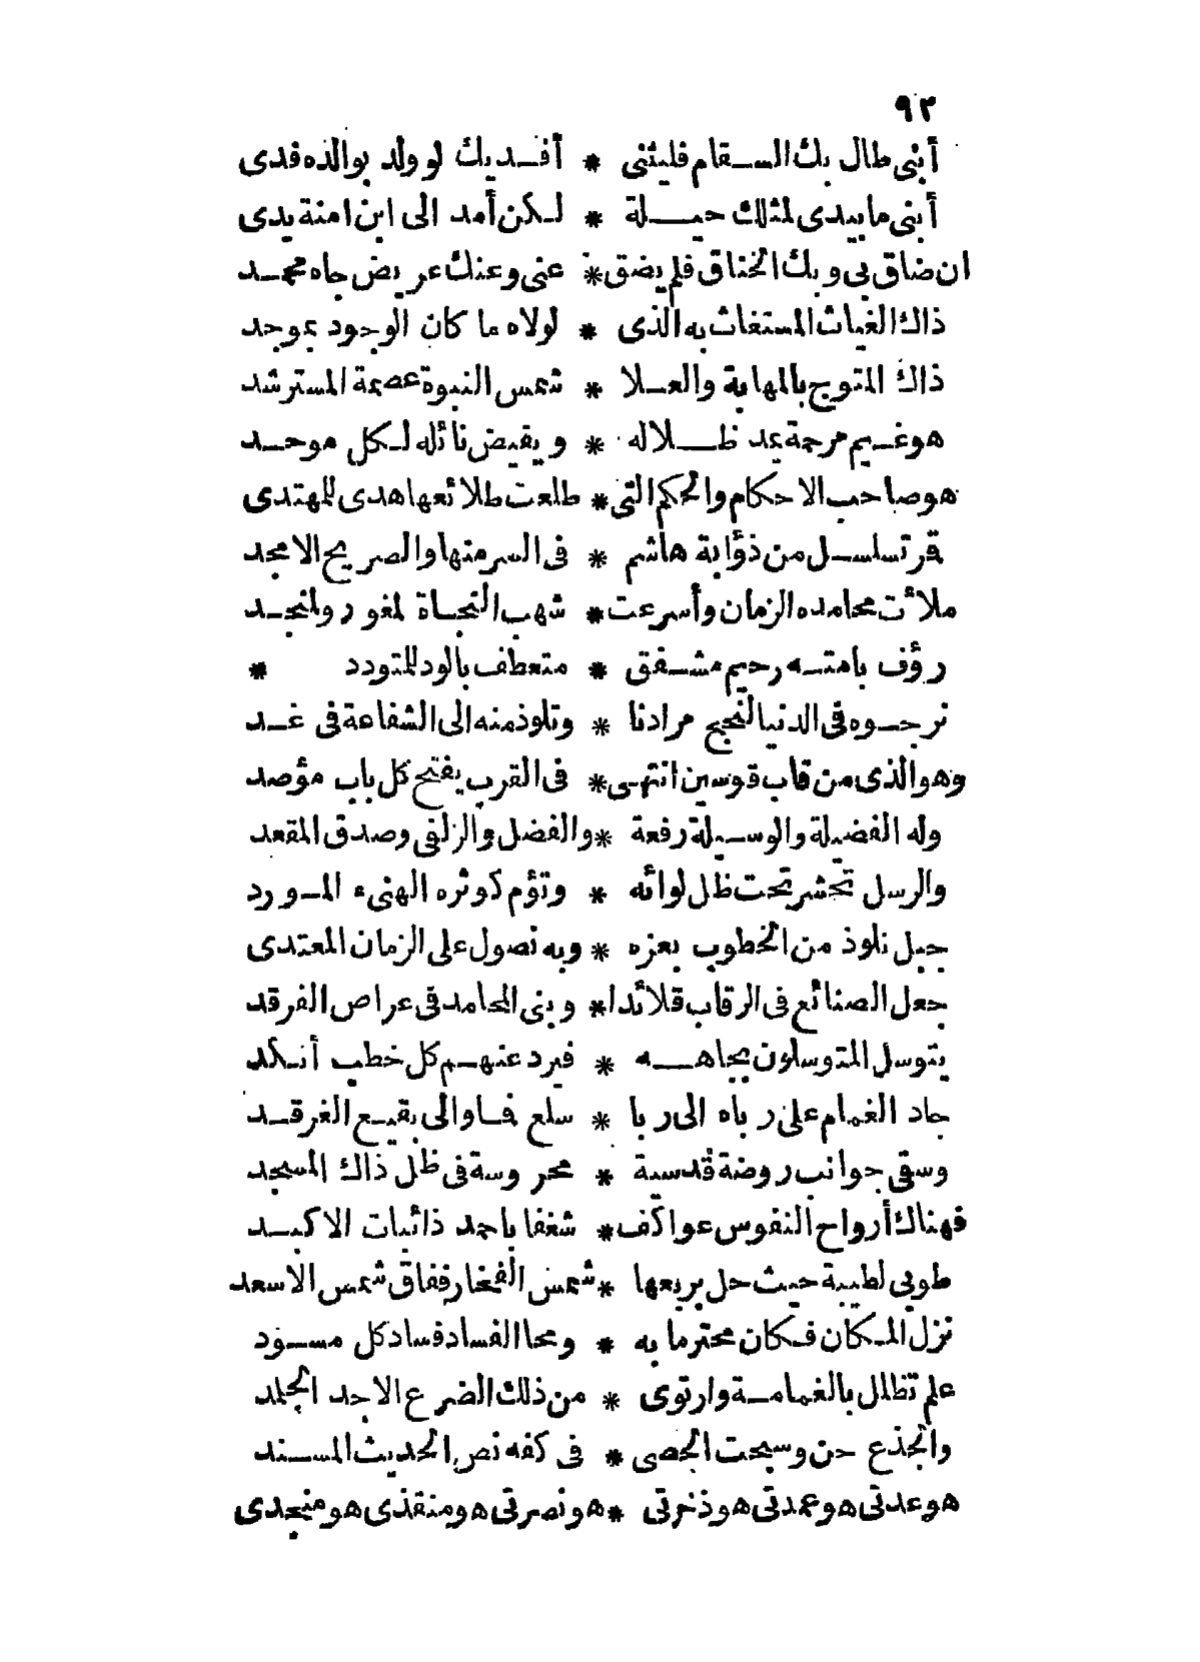 ٩٢
أبنى طال بك السقام فليتنى * أفديك لو ولد بوالده فدى
أبنى ما بيدى لمثلك حيلة * لكن أمد الى ابن امنة يدى
ان ضاق بى وبك الخناق فلم يضق * عنى وعنك عريض جاه محمد
ذاك الغياث المستغاث به الذى * لولاه ما كان الوجود بموجد
ذاك المتوج بالمهابة والعلا * شمس النبوة عصمة المسترشد
هو غيم مرحمة يمد ظلاله * ويفيض نائله لكل موحد
هو صاحب الاحكام والحكم التى * طلعت طلائعها هدى للمهتدى
قمر تسلسل من ذؤابة هاشم * فى السر منها والصريح الامجد
ملأت محامده الزمان وأسرعت * شهب النجاة لمغور ولمنجد
رؤف بامته رحيم مشفق * متعطف بالود للمتودد *
نرجوه فى الدنيا لنجح مرادنا * وتلوذ منه الى الشفاعة فى غد
وهو الذى من قاب قوسين انتهى * فى القرب يفتح كل باب مؤصد
وله الفضيلة والوسيلة رفعة * والفضل والزلفى وصدق المقعد
والرسل تحشر تحت ظل لوائه * وتؤم كوثره الهنىء المورد
جبل نلوذ من الخطوب بعزه * وبه نصول على الزمان المعتدى
جعل الصنائع فى الرقاب قلائدا * وبنى المحامد فى عراص الفرقد
يتوسل المتوسلون بجاهه * فيرد عنهم كل خطب أنكد
جاد الغمام على رباه الى ربا * سلع فما والى بقيع الغرقد
وسقى جوانب روضة قدسية * محروسة فى ظل ذاك المسجد
فهناك أرواح النفوس عواكف * شغفا باحمد ذائبات الاكبد
طوبى لطيبة حيث حل بربعها * شمس الفخار ففاق شمس الاسعد
نزل المكان فكان محترما به * ومحا الفساد فساد كل مسود
علم تظلل بالغمامة وارتوى * من ذلك الضرع الاجد الجلد
والجذع حن وسبحت الحصى * فى كفه نص الحديث المسند
هو عدتى هو عمدتى هو ذخرتى * هو نصرتى هو منقذى هو منجدى